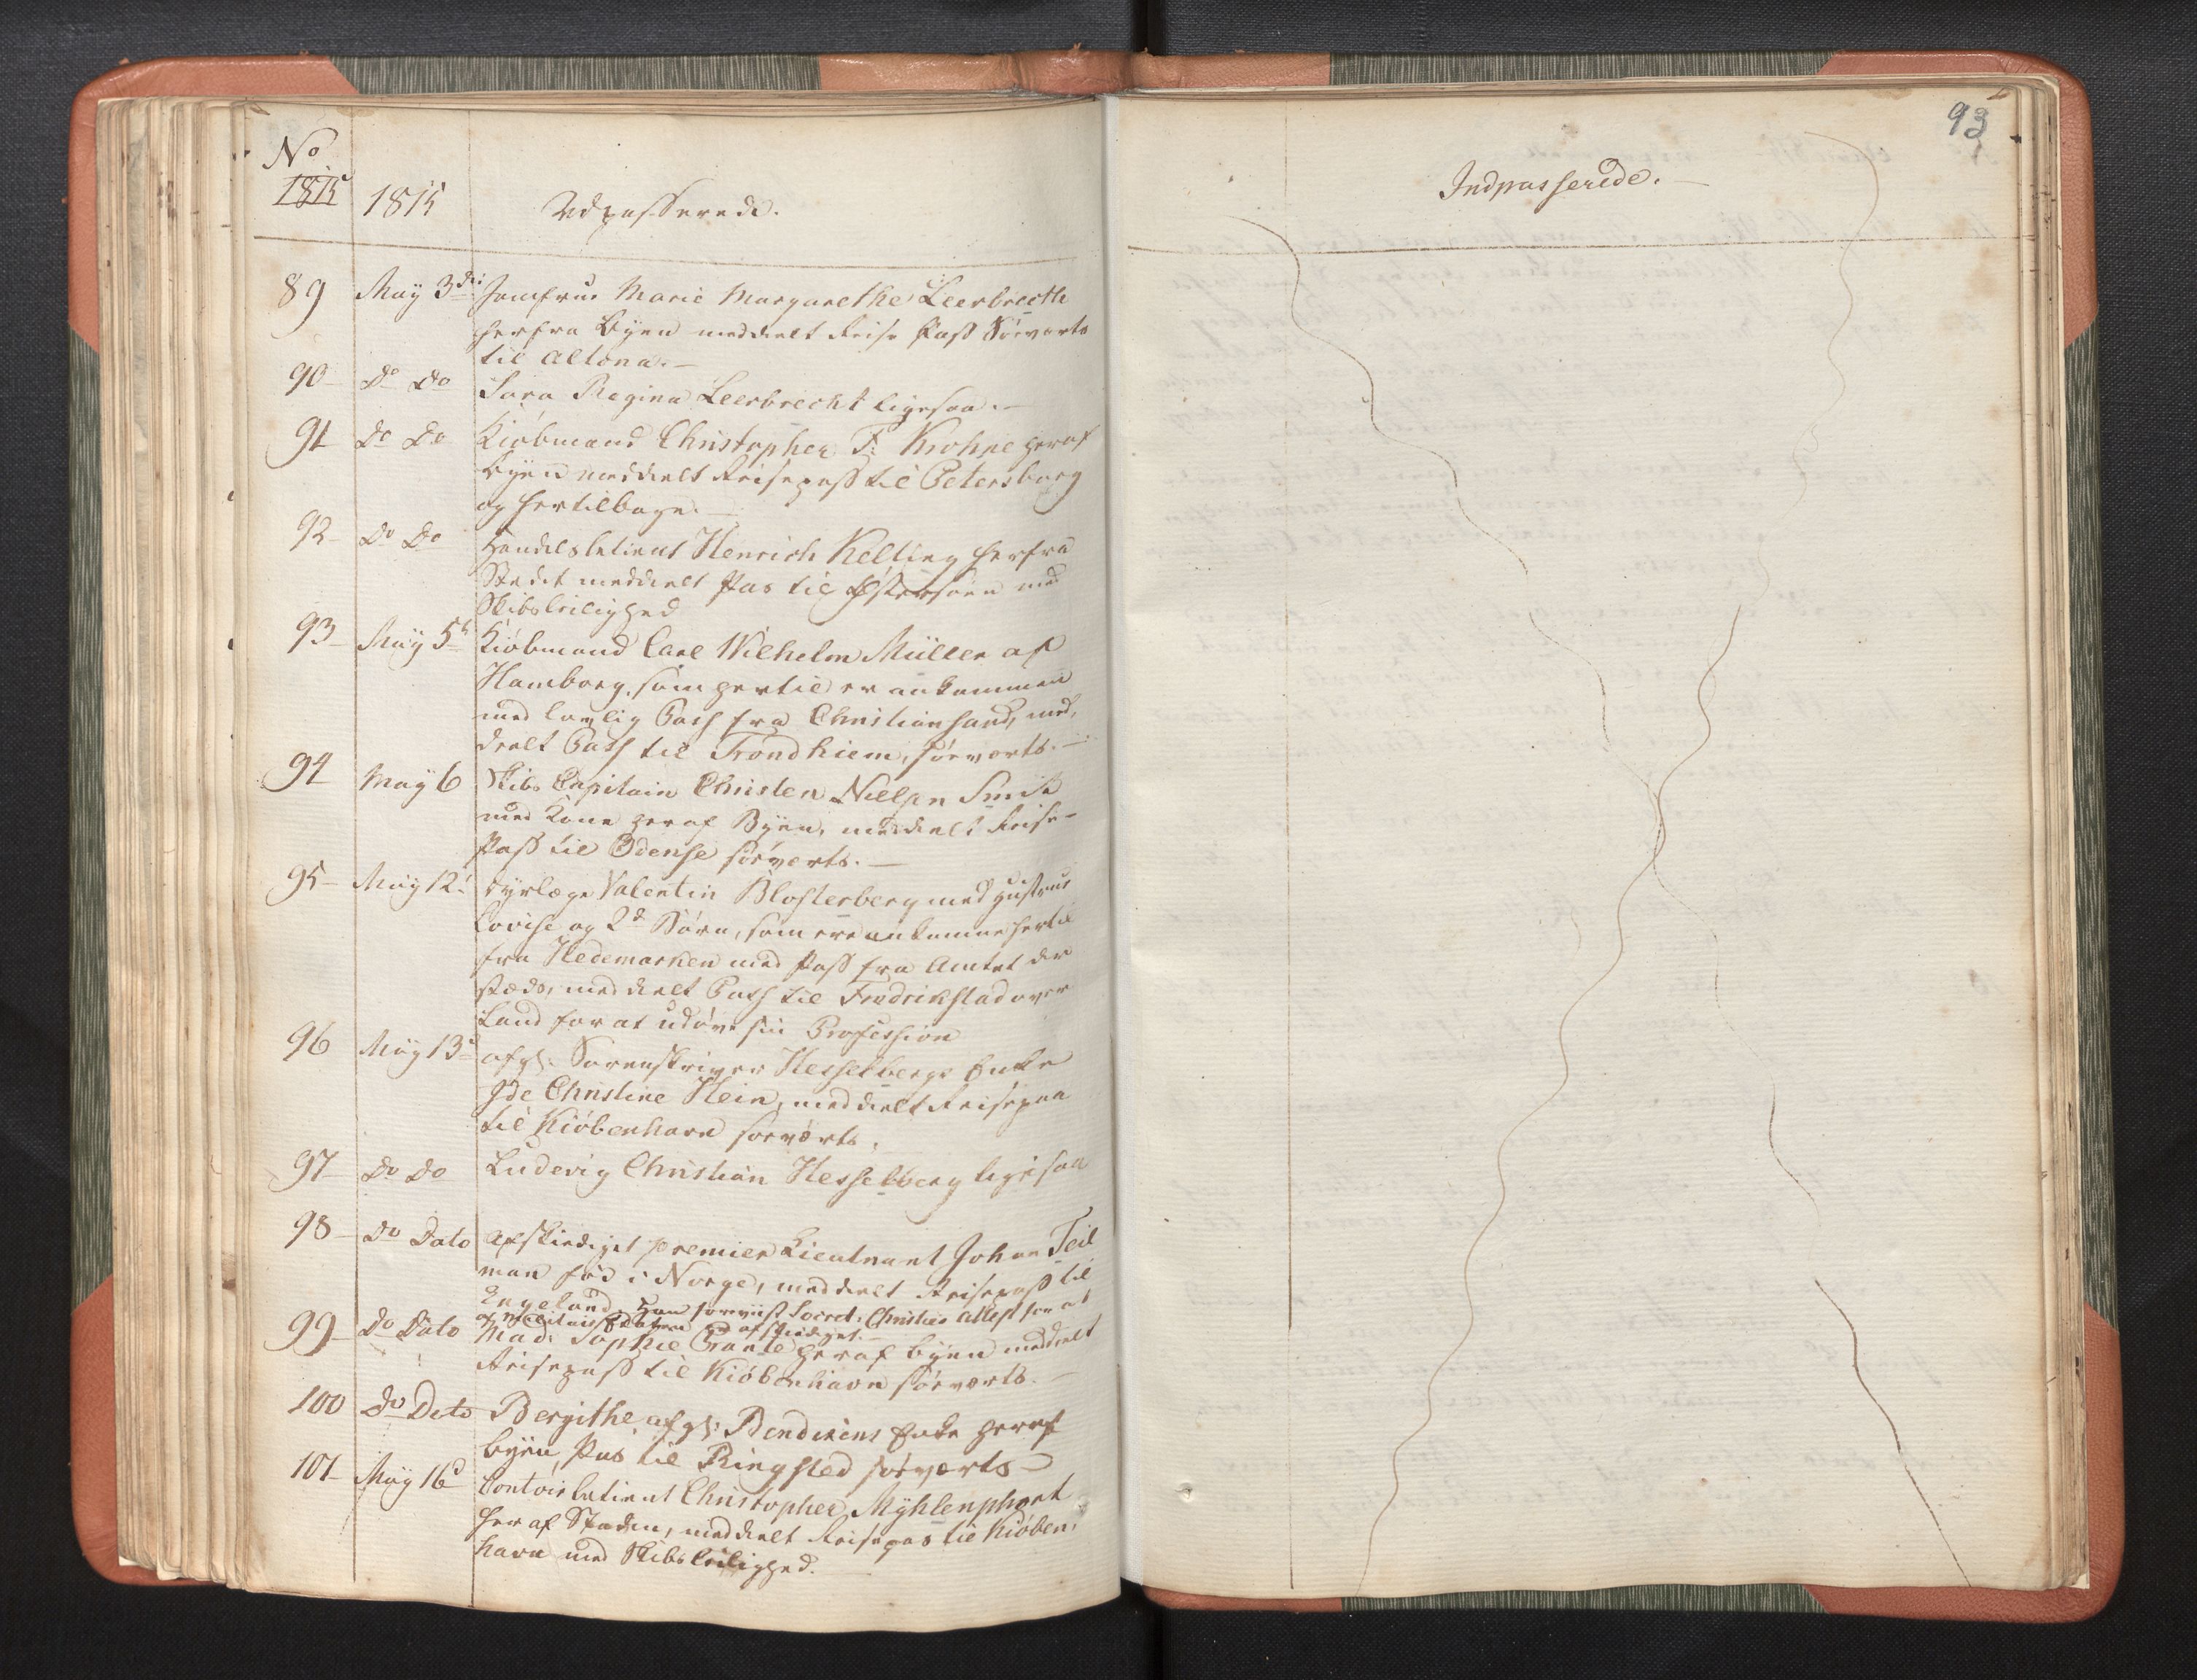 No
1815 1815 Udpasserede.
89 May 3die Jomfrue Marie Margarethe Leerbrecth
herfra Byen meddeelt Reise Pass Søeverts
til Altona.-
90- Do Do Sara Regina Leerbrecht ligesaa.-
91 Do Do Kiøbmand Christopher F: Krohne heraf
Byen meddeelt Reisepass til Petersborg
og hertilbage.-
92- Do Do Handelsbetient Henrich Kelling herfra
Stedet meddeelt Pas til Østersøen med
Skibsleilighed
93- May 5t Kiøbmand Carl Wilhelm Müller af
Hamborg, som hertil er ankommen
med lovlig Pass fra Christiansand, med,
deelt Pass til Trondhiem, søeverts.-
94 May 6 Skibs Capitain Christen Nielsen Smit
med Kone heraf Byen, meddeelt Reise-
Pass til Odense søeverts.-
95- May 12t Dyrlæge Valentin Blosterberg med Hustrue
Lovise og 2de Børn, som ere ankomne hertil
fra Hedemarken med Pass fra Amtet der
steds, meddeelt Pass til Fredrikstad over
Land for at udøve sin Profession
96 May 13d afgl: Sorenskriver Hesselbergs Enke
Ide Christine Klein, meddeelt Reisepas
til Kiøbenhavn søeverts.
97- Do Do Ludevig Christian Hesselberg ligesaa
98- Do Dato Afskediget premier Lieutnant Johan Teil
man fød i Norge, meddeelt Reisepass til
Engeland, Han foreviiste Secret: Christies Attest for at
af Militair Etaten er afskediget.-
99- Do Dato Mad: Sophie heraf byen meddeelt
Reisepass til Kiøbenhavn søeverts.-
100 do Dato Bergithe, afgl: Bendixens Enke heraf
byen, Pas til Ringsted søeverts-
101- May 16d Contoirbetient Christopher Myhlenphort
her af Staden, meddeelt Reisepas til Kiøben,
havn med Skibsleilighed.
93
Indpasserede.-